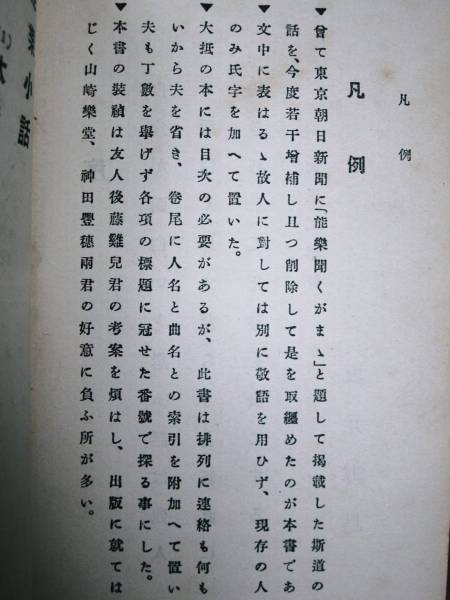 凡例
凡例
▼曾て東京朝日新聞に「能樂聞くがまゝ」と題して掲載した斯道の
話を、今度若干增補し且つ削除して是を取纏めたのが本書であ
▼文中に表はるゝ故人に對しては別に敬語を用ひず、現存の人
のみ氏字を加へて置いた。
▼大抵の本には目次の必要があるが、此書は排列に連絡も何も
いから夫を省き、卷尾に人名と曲名との索引を附加へて置い
夫も丁數を擧げず各項の標題に冠せた番號で探る事にした。
▼本書の裝幀は友人後藤雞兒君の考案を煩はし、出版に就ては
じく山崎樂堂、神田豐穗兩君の好意に負ふ所が多い。
小話